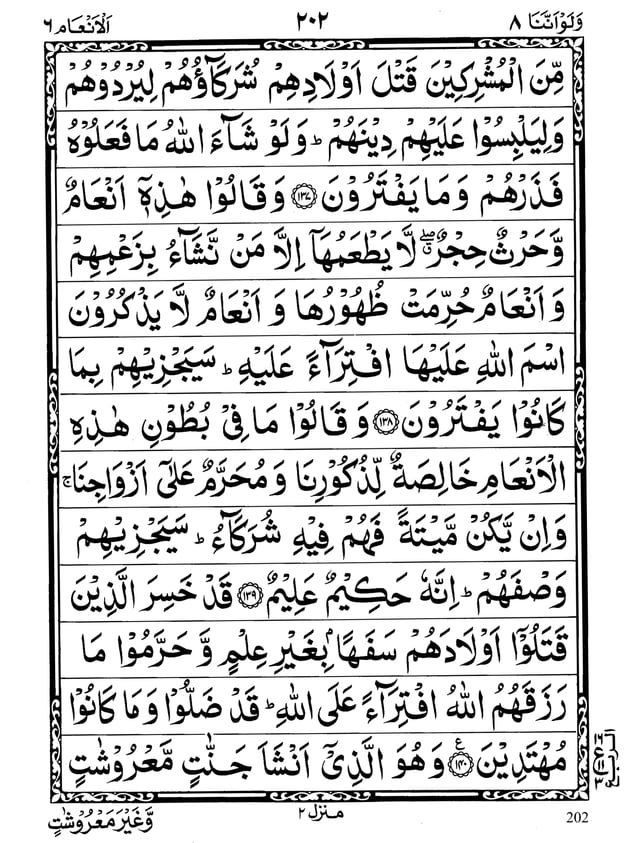 وَلَوْ اَنَّنَا ۸
۲۰۲
اَلْاَنْعَام ٦
مِّنَ الْمُشْرِكِيْنَ قَتْلَ اَوْلَادِهِمْ شُرَكَآؤُهُمْ لِيُرْدُوْهُمْ
وَلِيَلْبِسُوْا عَلَيْهِمْ دِيْنَهُمْ ؕ وَلَوْ شَآءَ اللّٰهُ مَا فَعَلُوْهُ
فَذَرْهُمْ وَمَا يَفْتَرُوْنَ ﴿۱۳۷﴾ وَقَالُوْا هٰذِهٖۤ اَنْعَامٌ
وَّحَرْثٌ حِجْرٌ ۖۗ لَّا يَطْعَمُهَاۤ اِلَّا مَنْ نَّشَآءُ بِزَعْمِهِمْ
وَاَنْعَامٌ حُرِّمَتْ ظُهُوْرُهَا وَاَنْعَامٌ لَّا يَذْكُرُوْنَ
اسْمَ اللّٰهِ عَلَيْهَا افْتِرَآءً عَلَيْهِ ؕ سَيَجْزِيْهِمْ بِمَا
كَانُوْا يَفْتَرُوْنَ ﴿۱۳۸﴾ وَقَالُوْا مَا فِيْ بُطُوْنِ هٰذِهِ
الْاَنْعَامِ خَالِصَةٌ لِّذُكُوْرِنَا وَمُحَرَّمٌ عَلٰۤى اَزْوَاجِنَا ۚ
وَاِنْ يَّكُنْ مَّيْتَةً فَهُمْ فِيْهِ شُرَكَآءُ ؕ سَيَجْزِيْهِمْ
وَصْفَهُمْ ؕ اِنَّهٗ حَكِيْمٌ عَلِيْمٌ ﴿۱۳۹﴾ قَدْ خَسِرَ الَّذِيْنَ
قَتَلُوْۤا اَوْلَادَهُمْ سَفَهًۢا بِغَيْرِ عِلْمٍ وَّحَرَّمُوْا مَا
رَزَقَهُمُ اللّٰهُ افْتِرَآءً عَلَى اللّٰهِ ؕ قَدْ ضَلُّوْا وَمَا كَانُوْا
مُهْتَدِيْنَ ﴿۱۴۰﴾ ع وَهُوَ الَّذِيْۤ اَنْشَاَ جَنّٰتٍ مَّعْرُوْشٰتٍ
وَّغَيْرَ مَعْرُوْشٰتٍ
منزل ۲
202